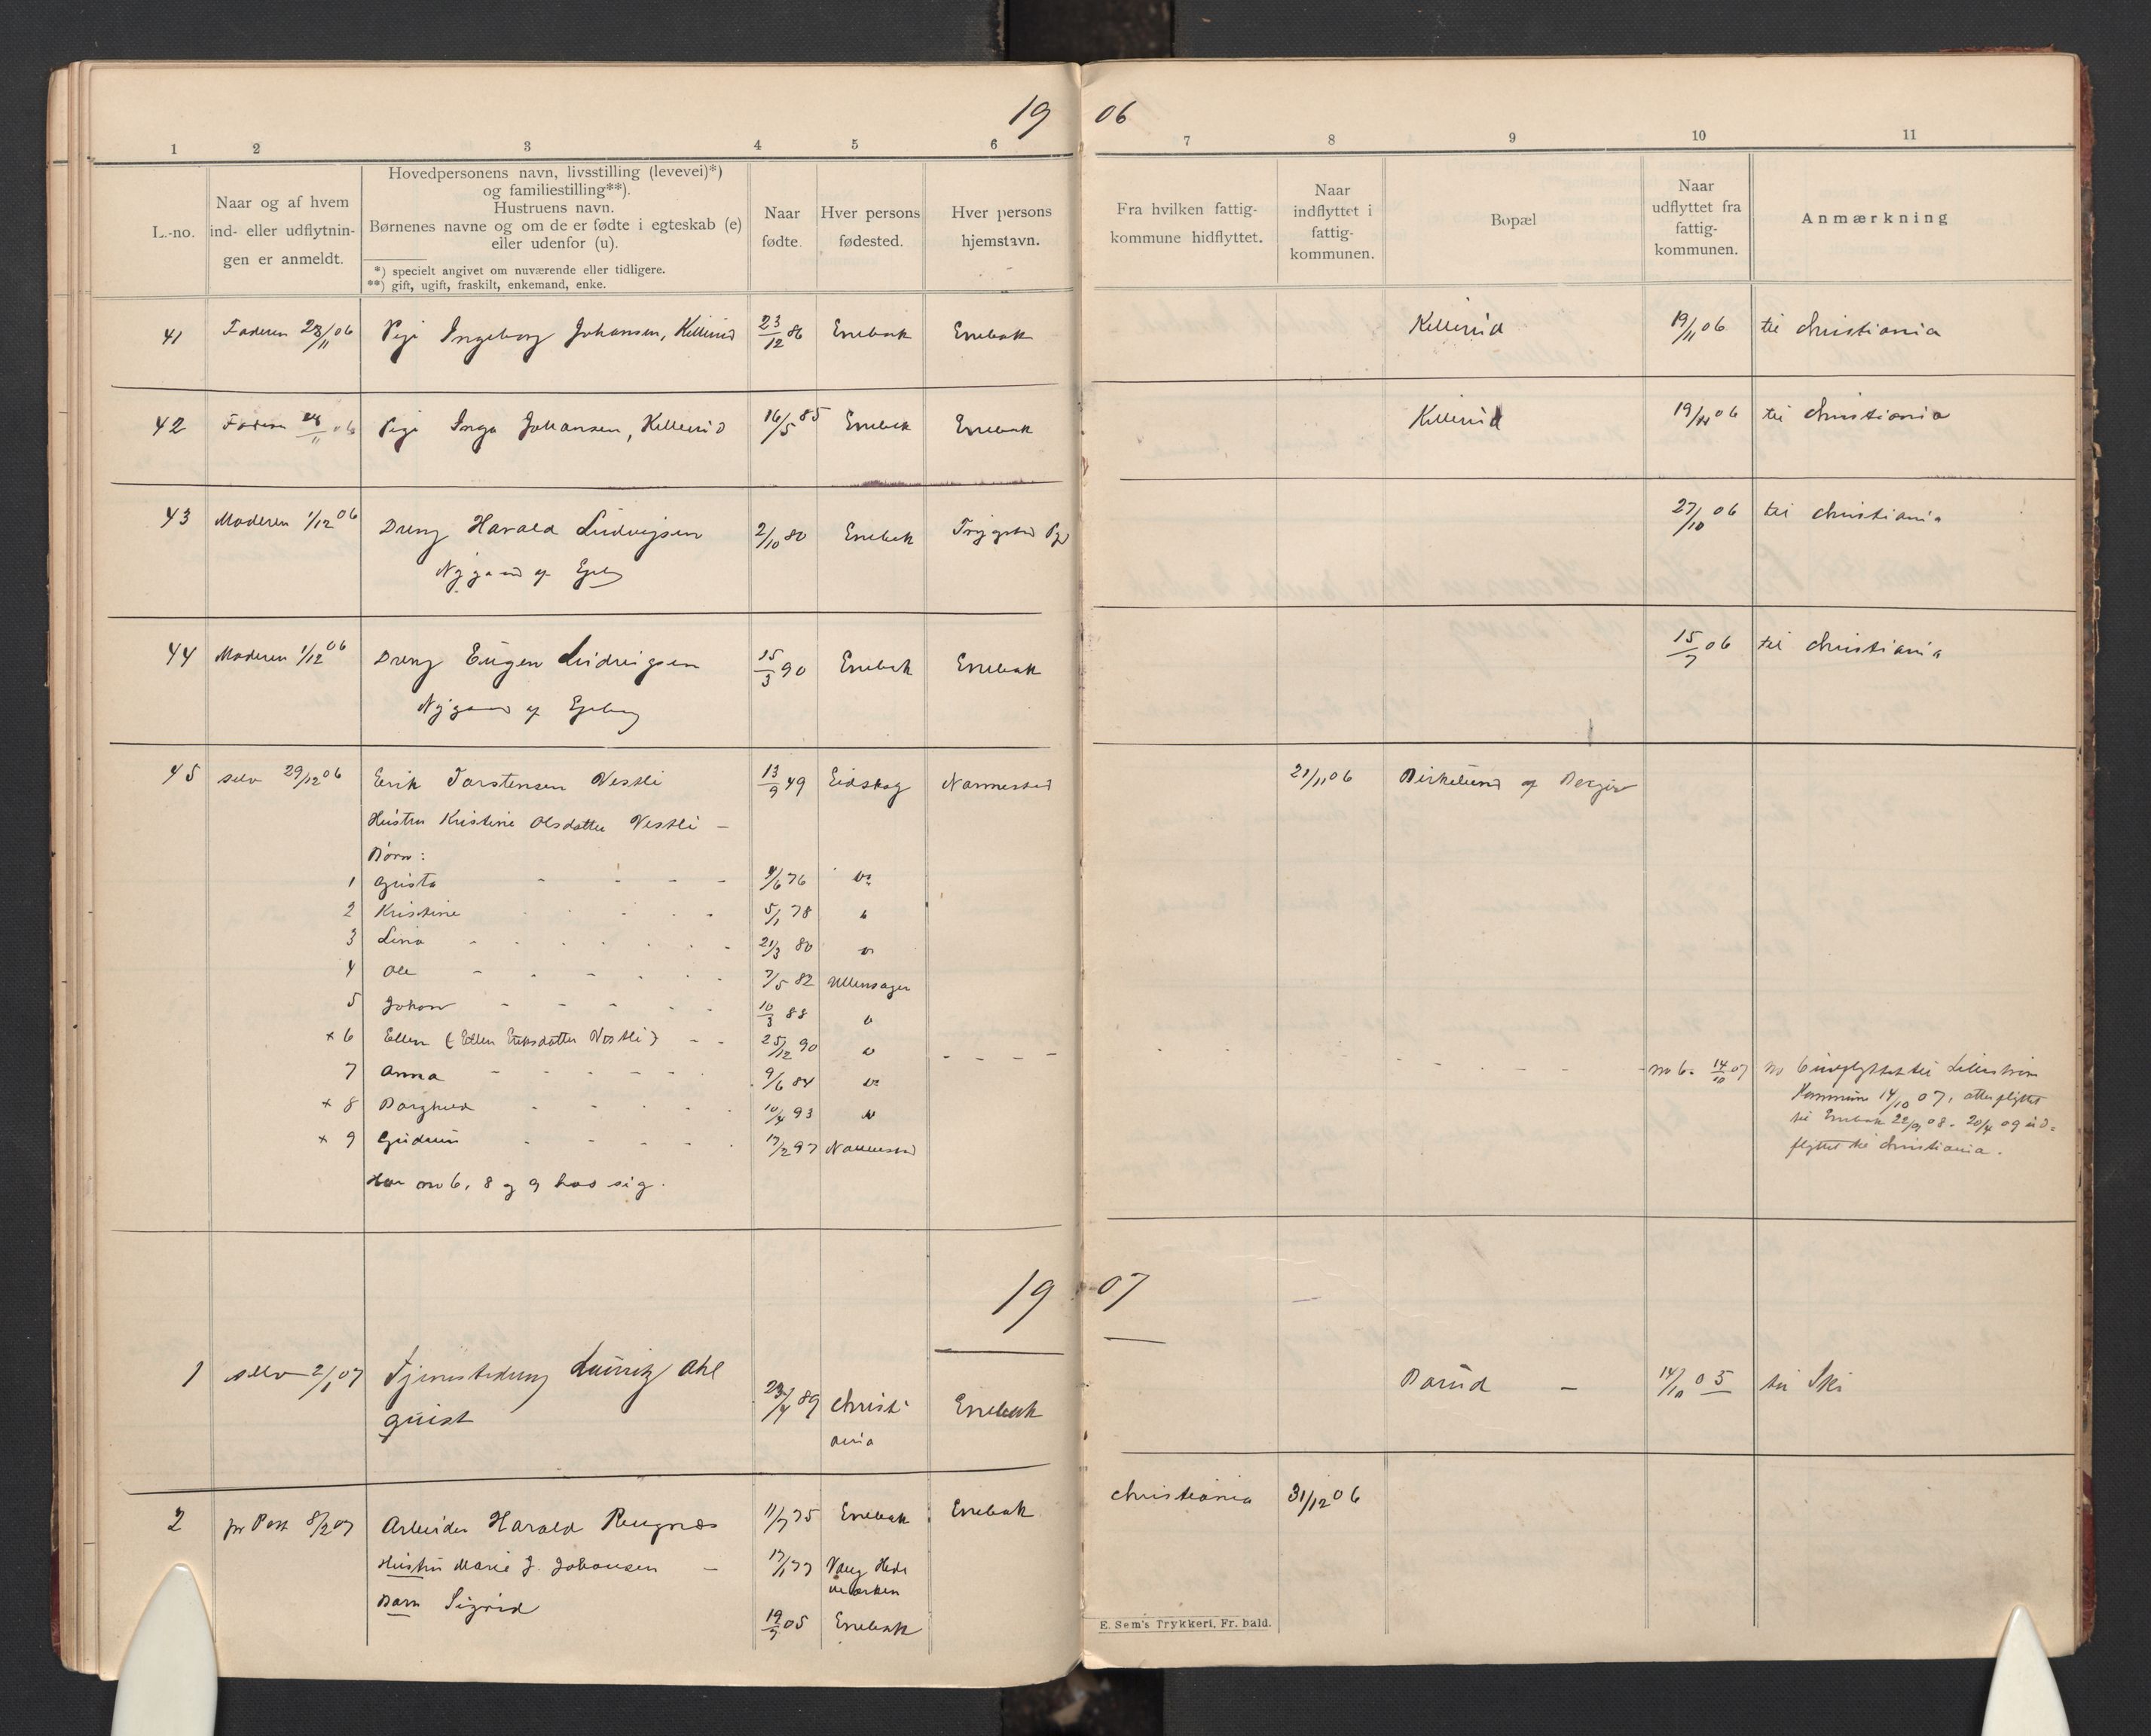 19 06
1 2 3 4 5 6 7 8 9 10 11
L.-no.
Naar og af hvem
ind- eller udflytnin-
gen er anmeldt.
Hovedpersonens navn, livsstilling (levevei)*)
og familiestilling**).
Hustruens navn.
Børnenes navne og om de er fødte i egteskab (e)
eller udenfor (u).
*) specielt angivet om nuværende eller tidligere.
**) gift, ugift, fraskilt, enkemand, enke.
Naar
fødte.
Hver persons
fødested.
Hver persons
hjemstavn.
Fra hvilken fattig-
kommune hidflyttet.
Naar
indflyttet i
fattig-
kommunen.
Bopæl
Naar
udflyttet fra
fattig-
kommunen.
Anmærkning
41 Faderen 23/11 06 Pige Ingeborg Johansen, Killerud 23/12 86 Enebak Enebak Killerud 19/11 06 til Christiania
42 Faderen 23/11 06 Pige Inga Johansen, Killerud 16/5 85 Enebak Enebak Killerud 19/11 06 til Christiania
43 Moderen 1/12 06 Dreng Harald Ludvigsen 2/10 80 Enebak Trygstad 27/10 06 til Christiania
Nygaard af
44 Moderen 1/12 06 Dreng Eugen Ludvigsen 15/3 90 Enebak Enebak 15/7 06 til Christiania
Nygaard af
45 selv 29/12 06 Erik Torstensen Vestli 13/9 49 Eidskog Nannestad 21/11 06 Birkelund af
Hustru Kristine Olsdatter Vestli -
Børn:
1 Gusta - - - - 9/6 76
2 Kristine 5/1 78
3 Lina 21/3 80
4 Ole 7/5 82 Ullensager
5 Johan 10/3 88
x 6 Ellen (Ellen Eriksdatter Vestli) - - 25/12 90 no 6. 14/10 07 no 6 udflyttet til Lillestrøm
7 Anna 9/6 84 Kommune 14/10 07, atter flyttet
x 8 Borghild 10/4 93 til Enebak 08. 20/4 09 ud=
x 9 Gudrun 17/2 97 Nannestad flyttet til Christiania.
Har no 6, 8 og 9 hos sig.
19 07
1 selv 2/1 07 Tjenestedreng Lauritz Ahl 23/4 89 Christi Enebak Borud - 14/10 05 til Ski
quist ania
2 pr Post 8/2 07 Arbeider Harald Rengnæs 11/7 75 Enebak Enebak Christiania 31/12 06
Hustru Marie J. Johansen - 17/1 77 Vang Hede
marken
Barn Sigrid 19/7 05 Enebak
E. Sem's Trykkeri, Fr.hald.